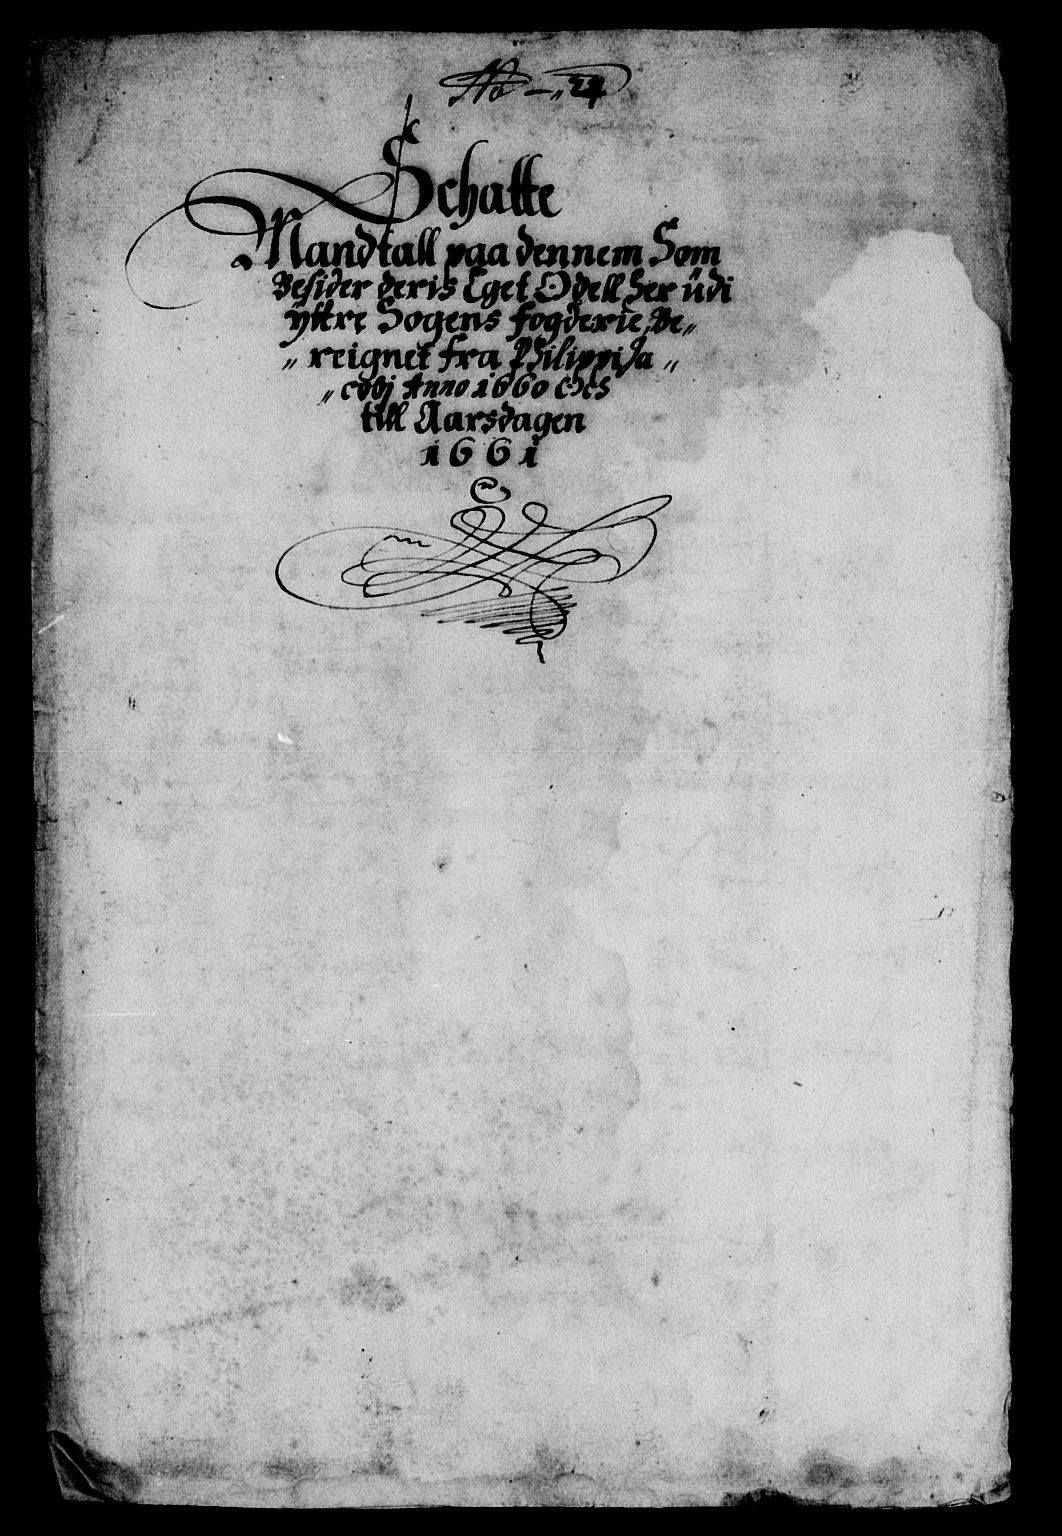 No – „ 24
Schatte
Mandtall paa dennem Som
Besider deris Eget Odell her üdi
yttre Sogens fogderie, Be„
„ reignet fra Philippi Ja „
„ cobj Anno 1660 och
till Aarsdagen
1661